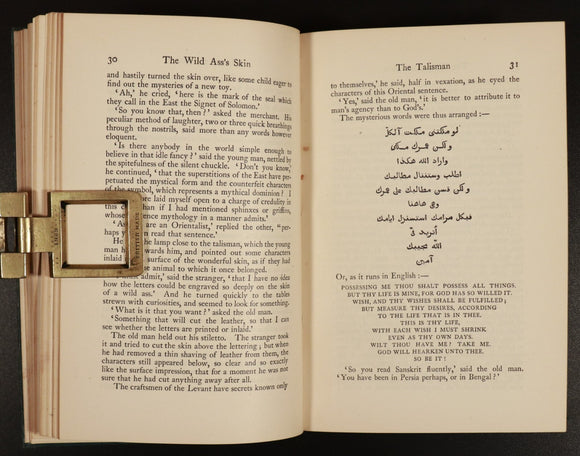 30 The Wild Ass's Skin
and hastily turned the skin over, like some child eager to
find out the mysteries of a new toy.
'Ah,' he cried, 'here is the mark of the seal which
they call in the East the Signet of Solomon.'
'So you know that, then?' asked the merchant. His
peculiar method of laughter, two or three quick breathings
through the nostrils, said more than any words however
eloquent.
'Is there anybody in the world simple enough to
believe in that idle fancy?' said the young man, nettled by
the spitefulness of the silent chuckle. 'Don't you know,'
he continued, 'that the superstitions of the East have per-
petuated the mystical form and the counterfeit characters
of the symbol, which represents a mythical dominion? I
more laid myself open to a charge of credulity in
this case, than if I had mentioned sphinxes or griffins,
whose existence mythology in a manner admits.'
'As you are an Orientalist,' replied the other, "per-
haps you can read that sentence.'
He the lamp close to the talisman, which the young
man towards him, and pointed out some characters
inlaid surface of the wonderful skin, as if they had
the animal to which it once belonged.
admit,' said the stranger, 'that I have no idea
how the letters could be engraved so deeply on the skin
of a wild ass.' And he turned quickly to the tables
strewn with curiosities, and seemed to look for something.
'What is it that you want?' asked the old man.
'Something that will cut the leather, so that I can
see whether the letters are printed or inlaid.'
The old man held out his stiletto. The stranger took
it and tried to cut the skin above the lettering; but when
he had removed a thin shaving of leather from them, the
characters still appeared below, so clear and so exactly
like the surface impression, that for a moment he was not
sure that he had cut anything away after all.
The craftsmen of the Levant have secrets known only
The Talisman 31
to themselves,' he said, half in vexation, as he eyed the
characters of this Oriental sentence.
'Yes,' said the old man, 'it is better to attribute it to
man's agency than to God's.'
The mysterious words were thus arranged:—
لو ملكتنى ملكت الكل
و لكن عمرك ملكى
واراد الله هكذا
اطلب وستنال مطالبك
و لكن قس مطالبك على عمرك
وهى هاهنا
فبكل مرامك استنزل ايامك
أتريد فى
الله مجيبك
آمين
Or, as it runs in English:—
POSSESSING ME THOU SHALT POSSESS ALL THINGS.
BUT THY LIFE IS MINE, FOR GOD HAS SO WILLED IT.
WISH, AND THY WISHES SHALL BE FULFILLED;
BUT MEASURE THY DESIRES, ACCORDING
TO THE LIFE THAT IS IN THEE.
THIS IS THY LIFE,
WITH EACH WISH I MUST SHRINK
EVEN AS THY OWN DAYS.
WILT THOU HAVE ME? TAKE ME.
GOD WILL HEARKEN UNTO THEE.
SO BE IT!
'So you read Sanskrit fluently,' said the old man.
'You have been in Persia perhaps, or in Bengal?'